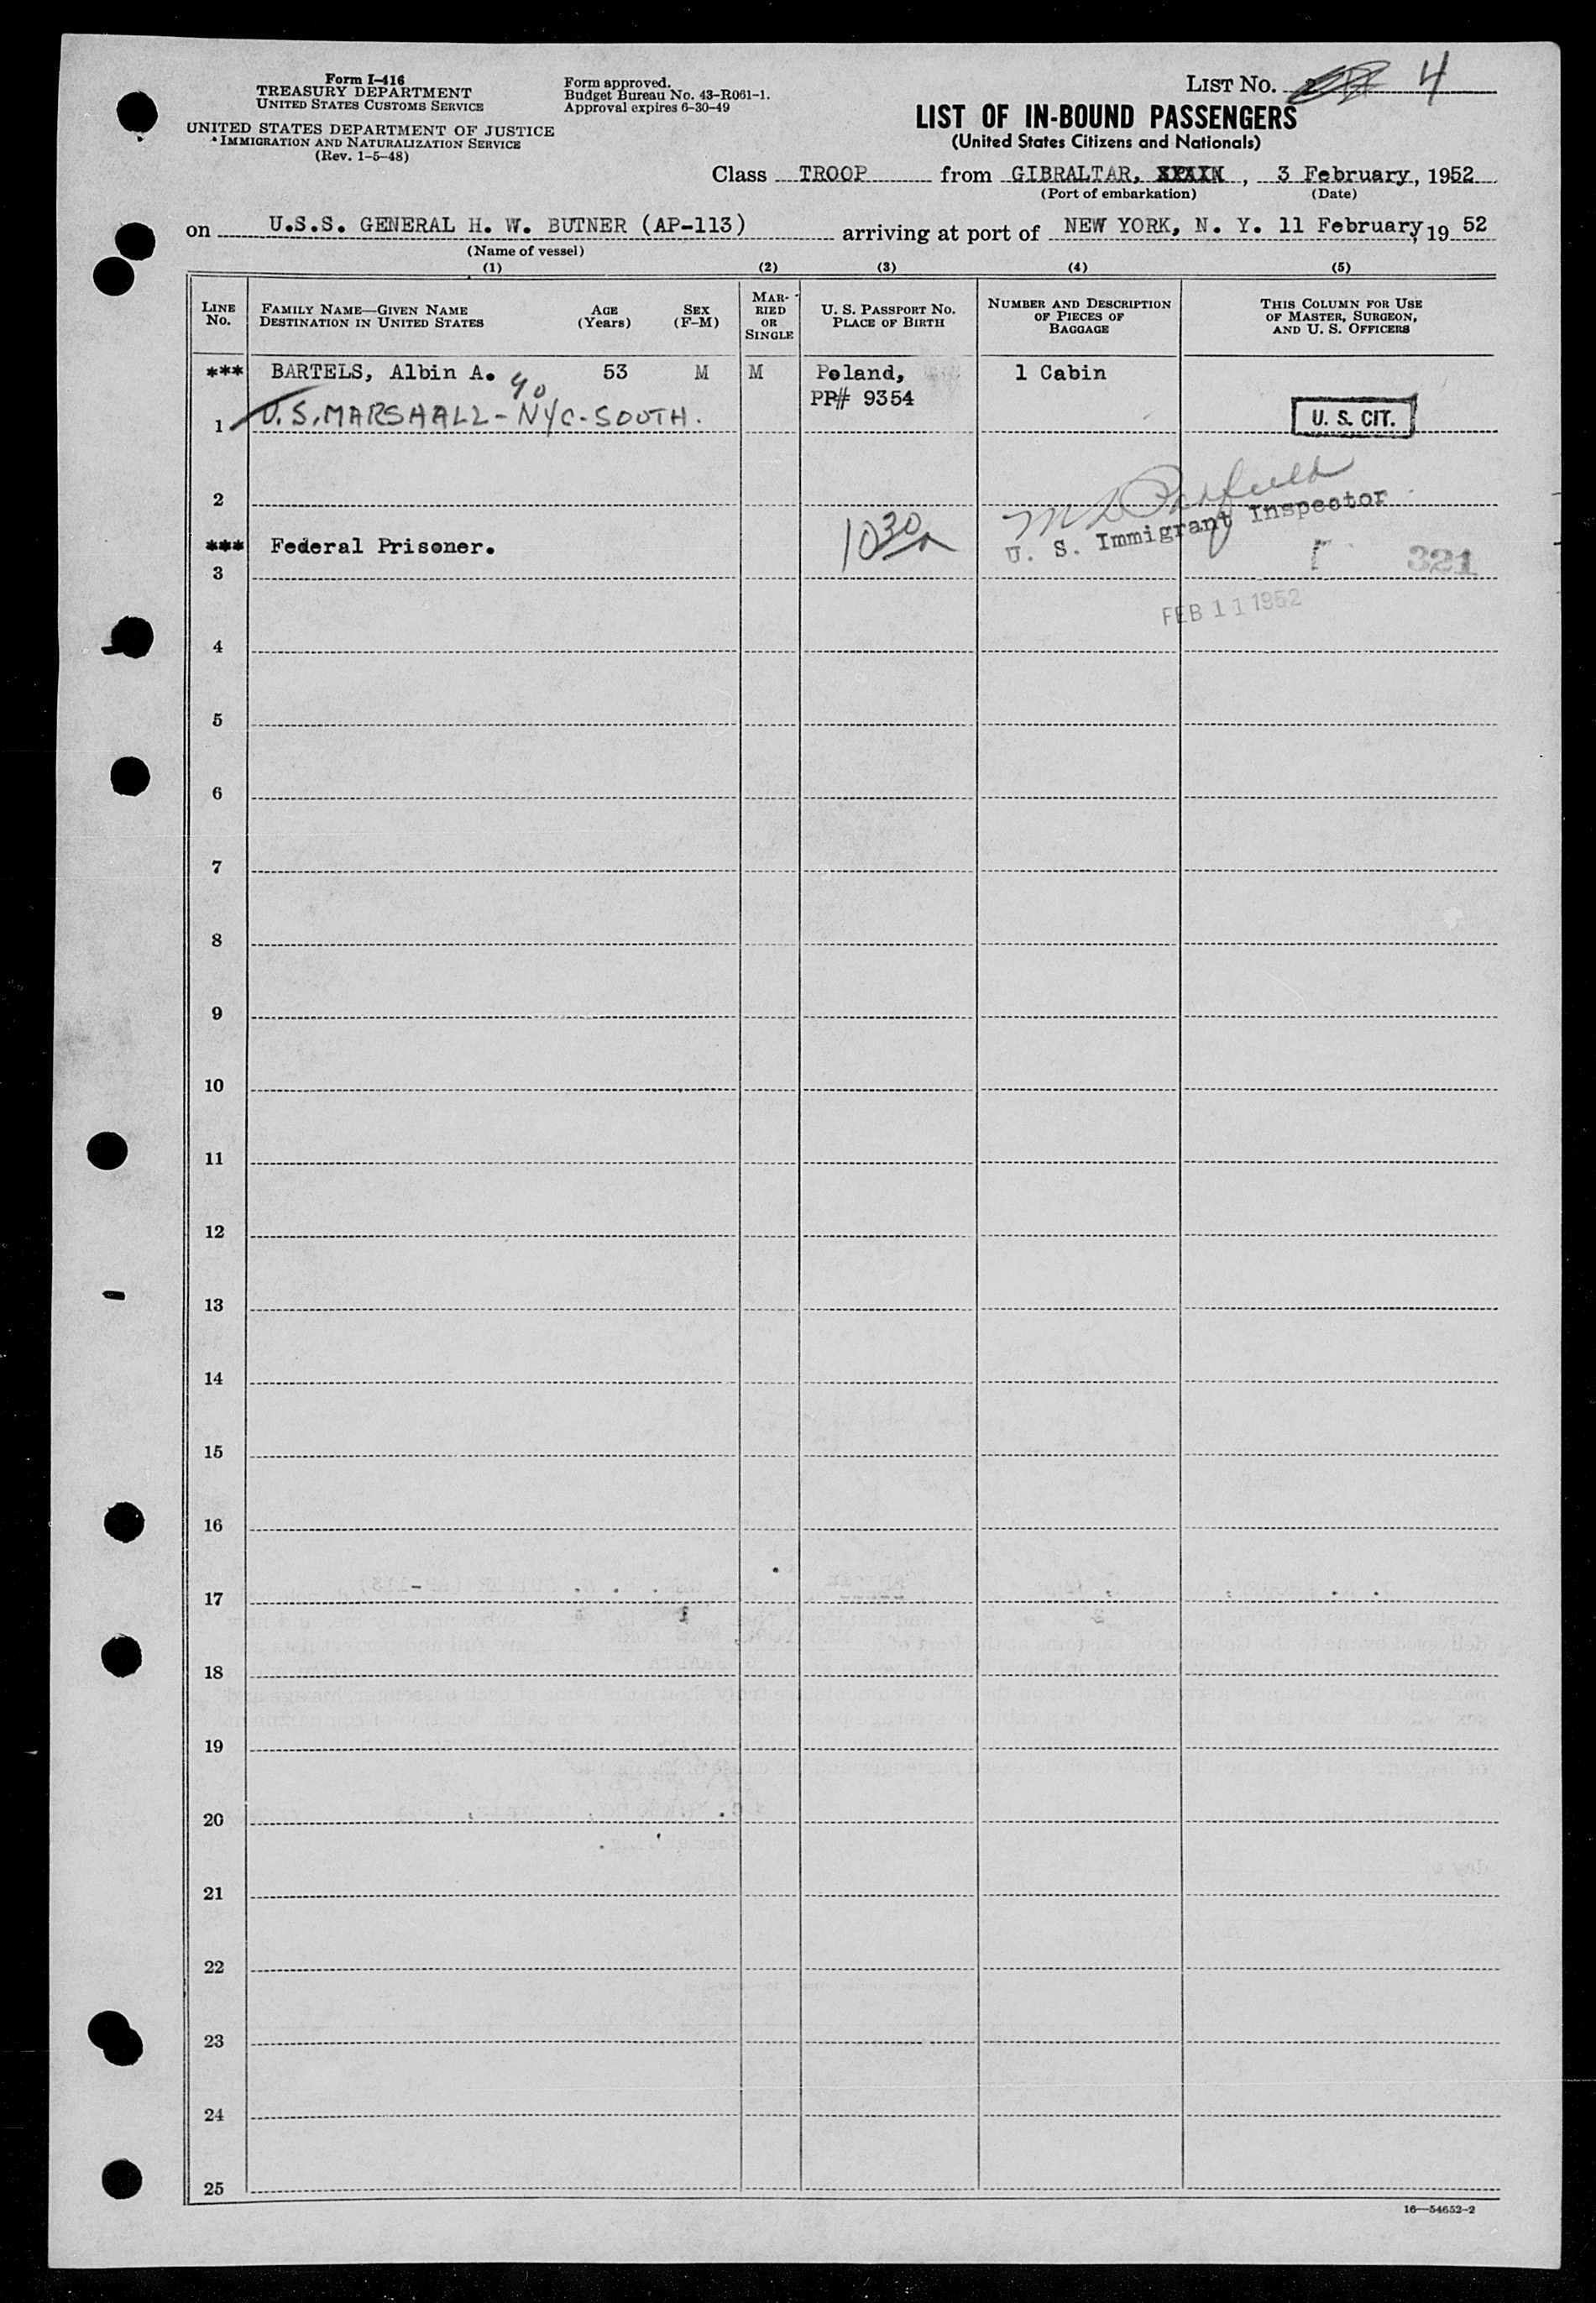 Form I-416
TREASURY DEPARTMENT
UNITED STATES CUSTOMS SERVICE
UNITED STATES DEPARTMENT OF JUSTICE
IMMIGRATION AND NATURALIZATION SERVICE
(Rev. 1-5-48)
Form approved.
Budget Bureau No. 43-R061-1.
Approval expires 6-30-49
LIST No. 4
LIST OF IN-BOUND PASSENGERS
(United States Citizens and Nationals)
Class TROOP from GIBRALTAR, , 3 February, 1952
(Port of embarkation) (Date)
on U.S.S. GENERAL H. W. BUTNER (AP-113) arriving at port of NEW YORK, N. Y. 11 February 19 52
(Name of vessel)
(1) (2) (3) (4) (5)
LINE No.
FAMILY NAME—GIVEN NAME
DESTINATION IN UNITED STATES
AGE (Years)
SEX (F-M)
MARRIED OR SINGLE
U. S. PASSPORT No.
PLACE OF BIRTH
NUMBER AND DESCRIPTION
OF PIECES OF
BAGGAGE
THIS COLUMN FOR USE
OF MASTER, SURGEON,
AND U. S. OFFICERS
*** BARTELS, Albin A. 53 M M Poland, 1 Cabin
PP# 9354
90
1 U.S. MARSHALL - NYC - SOUTH. U. S. CIT.
2
U. S. Immigrant Inspector
*** Federal Prisoner. 1030A
3 321
FEB 11 1952
4
5
6
7
8
9
10
11
12
13
14
15
16
17
18
19
20
21
22
23
24
25
16—54652-2